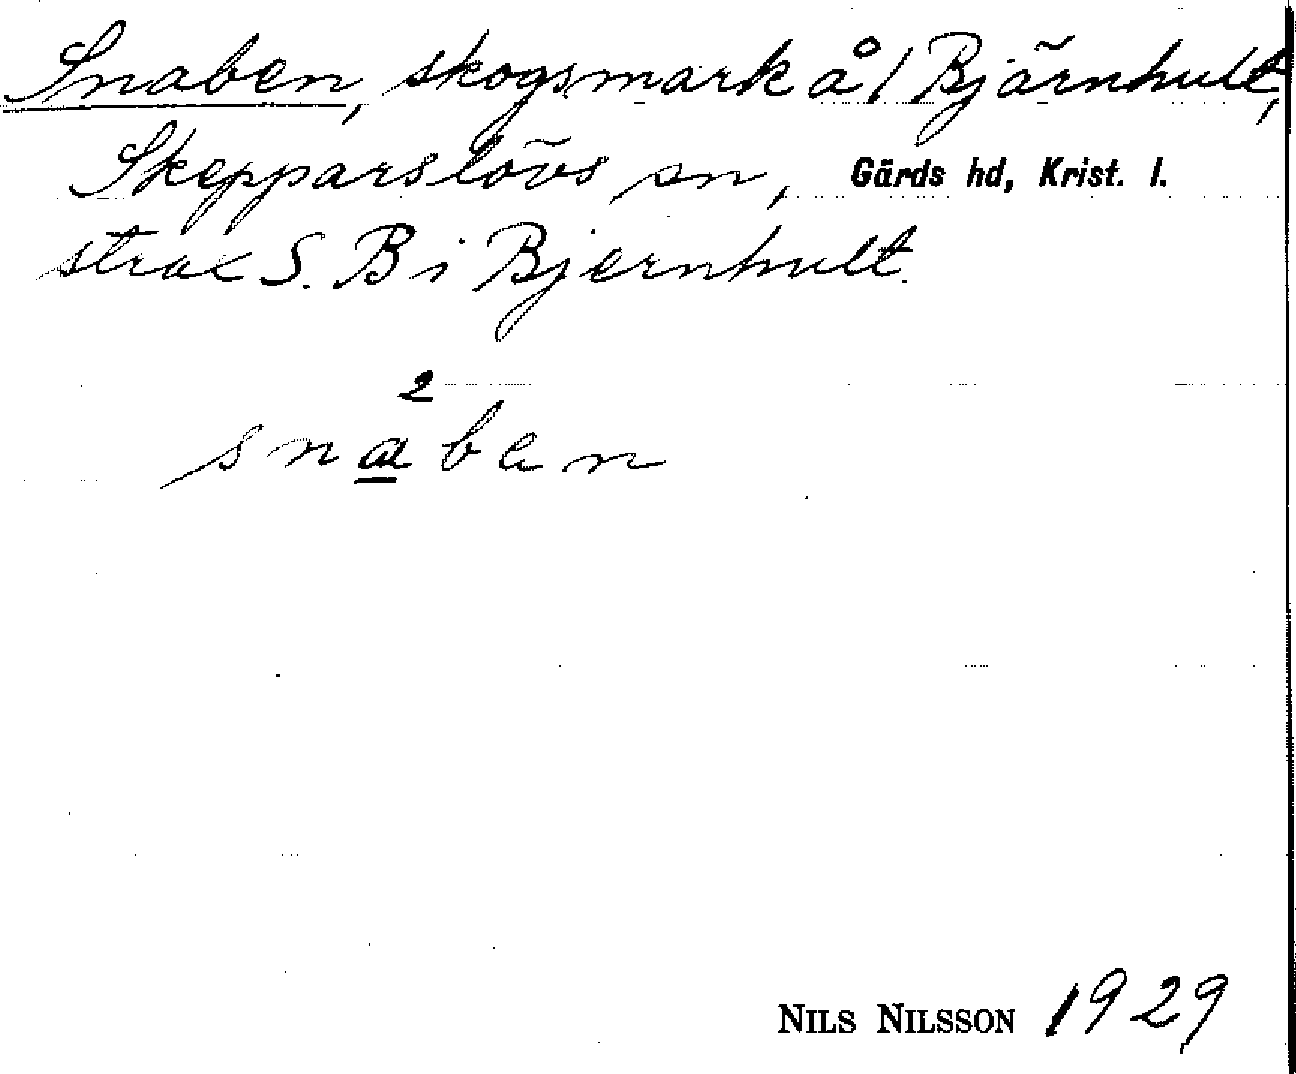 Snaben, skogsmark å 1 Bjärnhult,
Skepparslövs sn, Gärds hd, Krist. l.
strax S. B i Bjernhult.
2
snaben
NILS NILSSON 1929